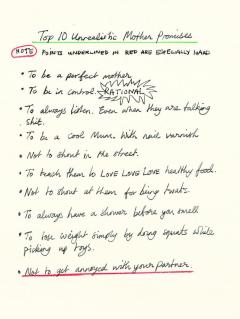 Top 10 Unrealistic Mother Promises
NOTE POINTS UNDERLINED IN RED ARE ESPECIALLY HARD
• To be a perfect mother
• To be in control. RATIONAL
• To always listen. Even when they are talking
shit.
• To be a cool Mum. With nail varnish
• Not to shout in the street.
• To teach them to LOVE LOVE LOVE healthy food.
• Not to shout at them for being twats.
• To always have a shower before you smell
• To lose weight simply by doing squats while
picking up toys.
• Not to get annoyed with your partner.